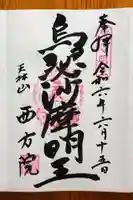 奉拝 令和六年六月十五日
烏瑟沙摩明王
天林山
西方院